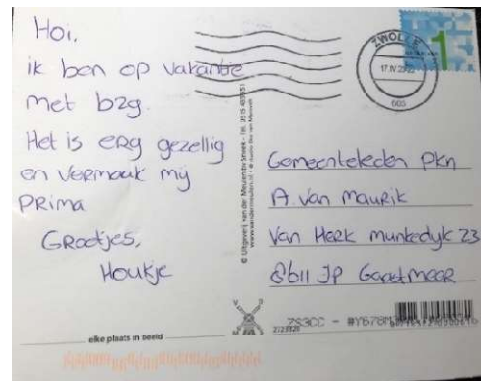 Hoi,
ik ben op vakantie
met bzg.
Het is erg gezellig
en vermaak mij
prima
Groetjes,
Houkje
ZWOLLE
17.IV.23
1
© Uitgeverij van der Meulen bv Sneek
www.vandermeulenbv.nl
Gemeenteleden PKN
A. van Maurik
Van Herk munkedyk 23
8611 JP Gaastmeer
elke plaats in beeld